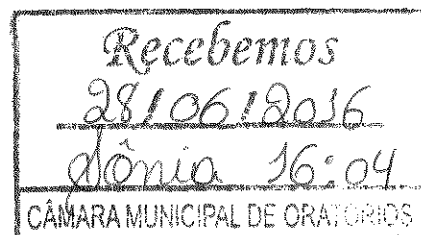 Recebemos
28/06/2016
Sônia 16:04
CÂMARA MUNICIPAL DE ORATÓRIOS